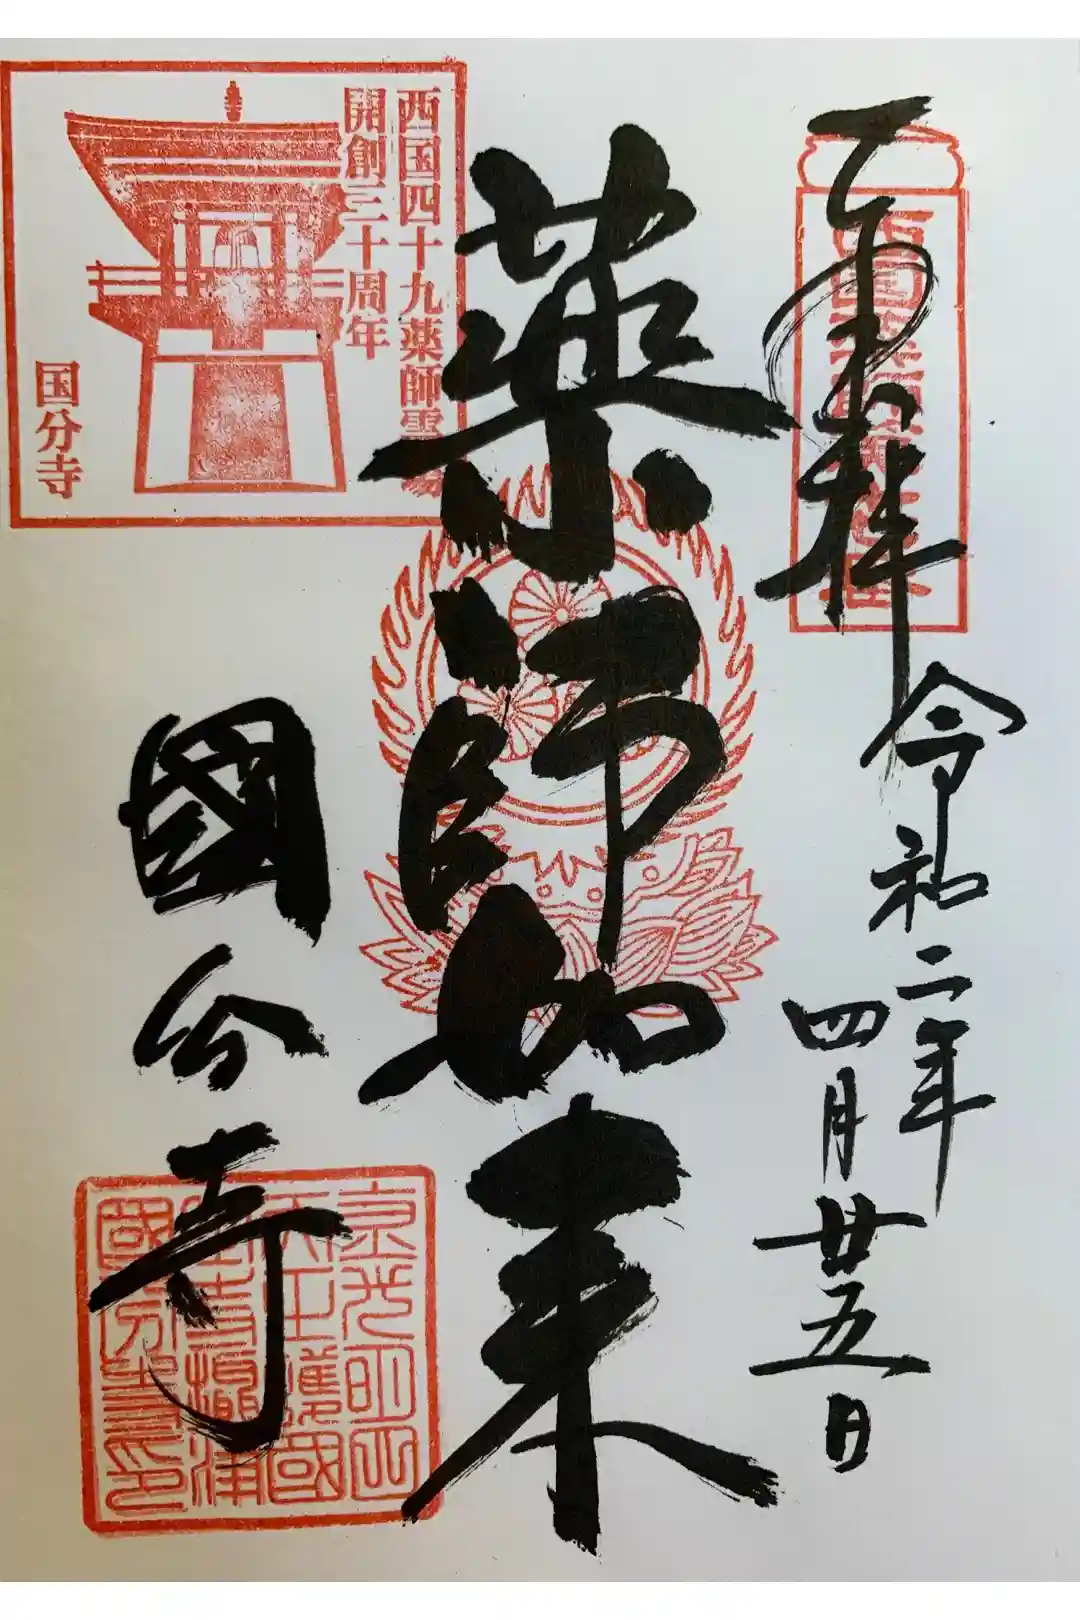 奉拝
令和二年
四月廿五日
薬師如来
國分寺
西国四十九薬師霊場
開創三十周年
国分寺